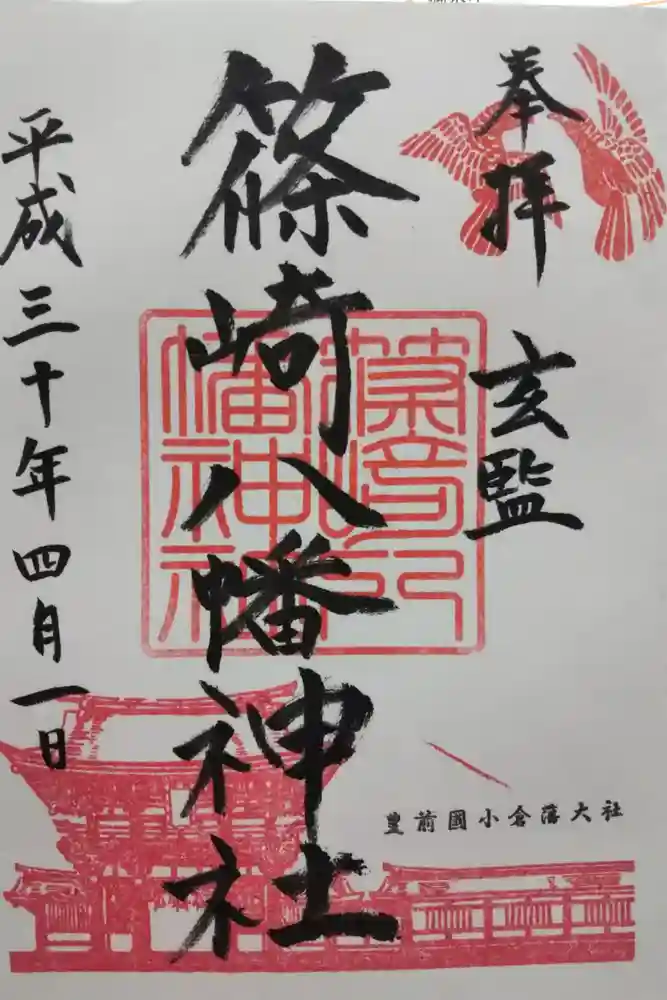 奉拝
玄監
篠崎八幡神社
篠崎八幡神社
平成三十年四月一日
豊前國小倉藩大社